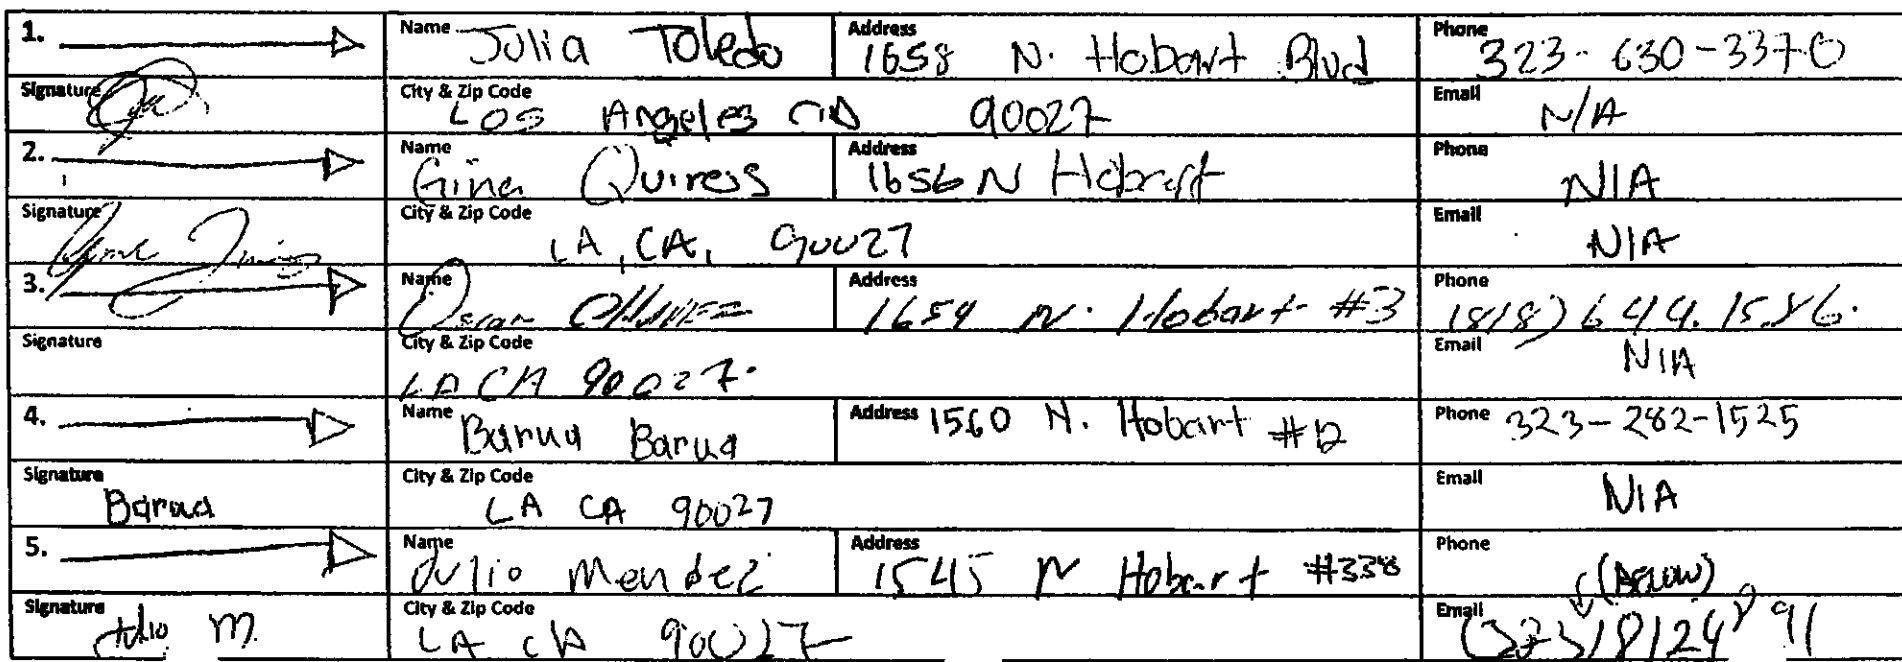 1. Name Julia Toledo Address 1658 N. Hobart Blvd Phone 323-630-3370
Signature City & Zip Code Los Angeles CA 90027 Email N/A
2. Name Gina Quiross Address 1656 N Hobart Phone N/A
Signature City & Zip Code LA, CA, 90027 Email N/A
3. Name Oscar Address 1654 N. Hobart #3 Phone (818) 644.1586.
Signature City & Zip Code LA CA 90027. Email N/A
4. Name Barua Barua Address 1560 N. Hobart #12 Phone 323-282-1525
Signature Barua City & Zip Code LA CA 90027 Email N/A
5. Name Julio Mendez Address 1545 N Hobart #338 Phone (BELOW)
Signature Julio M. City & Zip Code LA CA 90027 Email